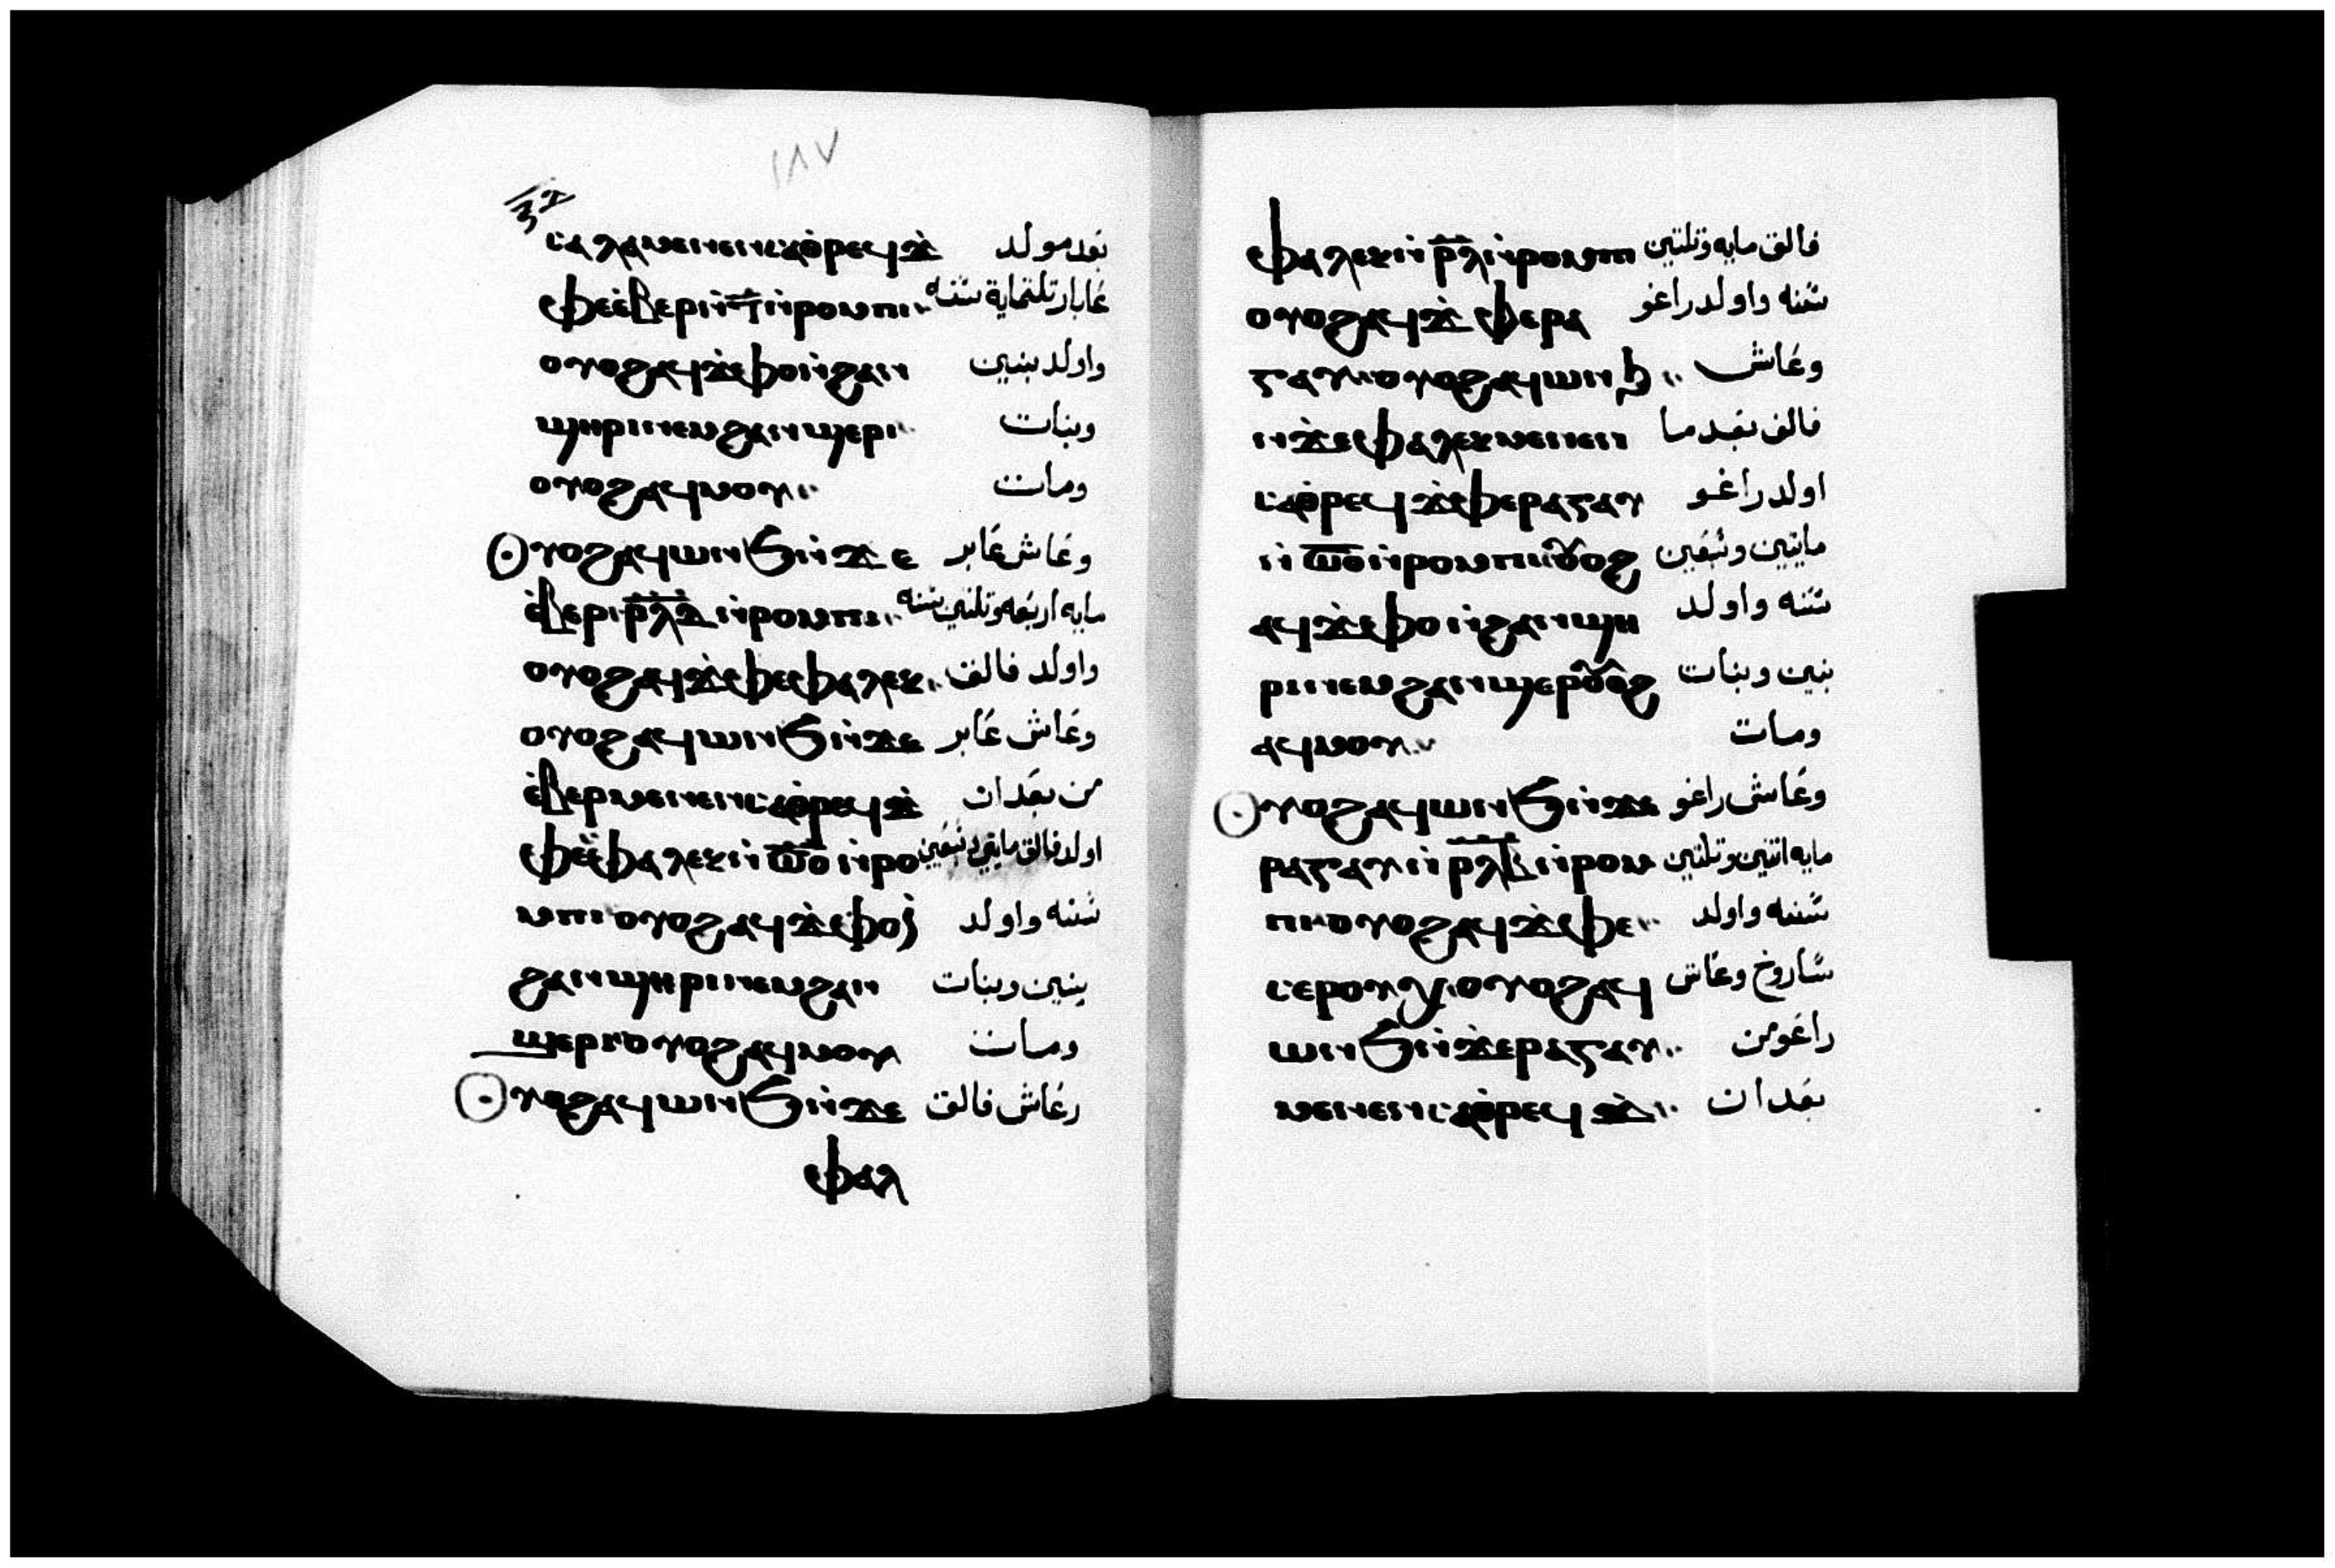 ١٨٧
ⲥⲁⲗⲁ ⲙⲉⲛⲉⲛⲥⲁ ⲑⲣⲉϥϫ̀ بعد مولد
ⲫⲉ ⲉ̀ⲃⲉⲣ ⲛ̀ⲧ̅ ⲛ̀ⲣⲟⲙⲡⲓ·· عابار تلتماية سنه
ⲟⲩⲟϩ ⲁϥϫ̀ⲫⲟ ⲛ̀ϩⲁⲛ واولد بنين
ϣⲏⲣⲓ ⲛⲉⲙ ϩⲁⲛϣⲉⲣⲓ·· وبنات
ⲟⲩⲟϩ ⲁϥⲙⲟⲩ·· ومات
ⲟⲩⲟϩ ⲁϥⲱⲛϧ ⲛ̀ϫⲉ وعاش عابر
ⲉ̀ⲃⲉⲣ ⲣ̅ⲗ̅ⲇ̅ ⲛ̀ⲣⲟⲙⲡⲓ·· مايه اربعه وتلتين سنه
ⲟⲩⲟϩ ⲁϥϫ̀ⲫⲉ ⲫⲁⲗⲉⲕ·· واولد فالق
ⲟⲩⲟϩ ⲁϥⲱⲛϧ ⲛ̀ϫⲉ وعاش عابر
ⲉ̀ⲃⲉⲣ ⲙⲉⲛⲉⲛⲥⲁ ⲑⲣⲉϥϫ̀ من بعد ان
ⲫⲉ ⲫⲁⲗⲉⲕ ⲛ̀ⲥ̅ⲟ̅ ⲛ̀ⲣⲟ اولد فالق مايتين وسبعين
ⲙⲡⲓ ⲟⲩⲟϩ ⲁϥϫ̀ⲫⲟ ⲛ̀ سنه واولد
ϩⲁⲛϣⲏⲣⲓ ⲛⲉⲙ ϩⲁⲛ بنين وبنات
ϣⲉⲣⲓ ⲟⲩⲟϩ ⲁϥⲙⲟⲩ ومات
ⲟⲩⲟϩ ⲁϥⲱⲛϧ ⲛ̀ϫⲉ وعاش فالق
ⲫⲁⲗ
ⲫⲁⲗⲉⲕ ⲛ̀ⲣ̅ⲗ̅ ⲛ̀ⲣⲟⲙⲡⲓ فالق مايه وتلتين
ⲟⲩⲟϩ ⲁϥϫ̀ⲫⲉ ⲣⲁ سنه واولد راغو
ⲅⲁⲩ·· ⲟⲩⲟϩ ⲁϥⲱⲛϧ·· وعاش
ⲛ̀ϫⲉ ⲫⲁⲗⲉⲕ ⲙⲉⲛⲉⲛ فالق بعد ما
ⲥⲁ ⲑⲣⲉϥϫ̀ⲫⲉ ⲣⲁⲅⲁⲩ اولد راغو
ⲛ̀ⲥ̅ⲟ̅ ⲛ̀ⲣⲟⲙⲡⲓ ⲟⲩⲟϩ مايتين وسبعين
ⲁϥϫ̀ⲫⲟ ⲛ̀ϩⲁⲛϣⲏ سنه واولد
ⲣⲓ ⲛⲉⲙ ϩⲁⲛϣⲉⲣⲓ ⲟⲩⲟϩ بنين وبنات
ⲁϥⲙⲟⲩ·· ومات
ⲟⲩⲟϩ ⲁϥⲱⲛϧ ⲛ̀ϫⲉ وعاش راغو
ⲣⲁⲅⲁⲩ ⲛ̀ⲣ̅ⲗ̅ⲃ̅ ⲛ̀ⲣⲟⲙ مايه اتنين وتلتين
ⲡⲓ ⲟⲩⲟϩ ⲁϥϫ̀ⲫⲉ·· سنه واولد
ⲥⲉⲣⲟⲩⲭ ⲟⲩⲟϩ ⲁϥ ساروخ وعاش
ⲱⲛϧ ⲛ̀ϫⲉ ⲣⲁⲅⲁⲩ·· راغو من
ⲙⲉⲛⲉⲛⲥⲁ ⲑⲣⲉϥϫ̀·· بعد ان